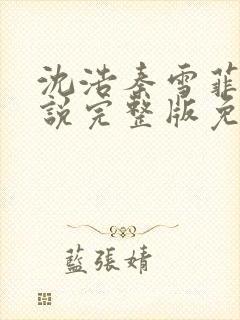 沈浩秦雪菲
說完整版免
藍張婧